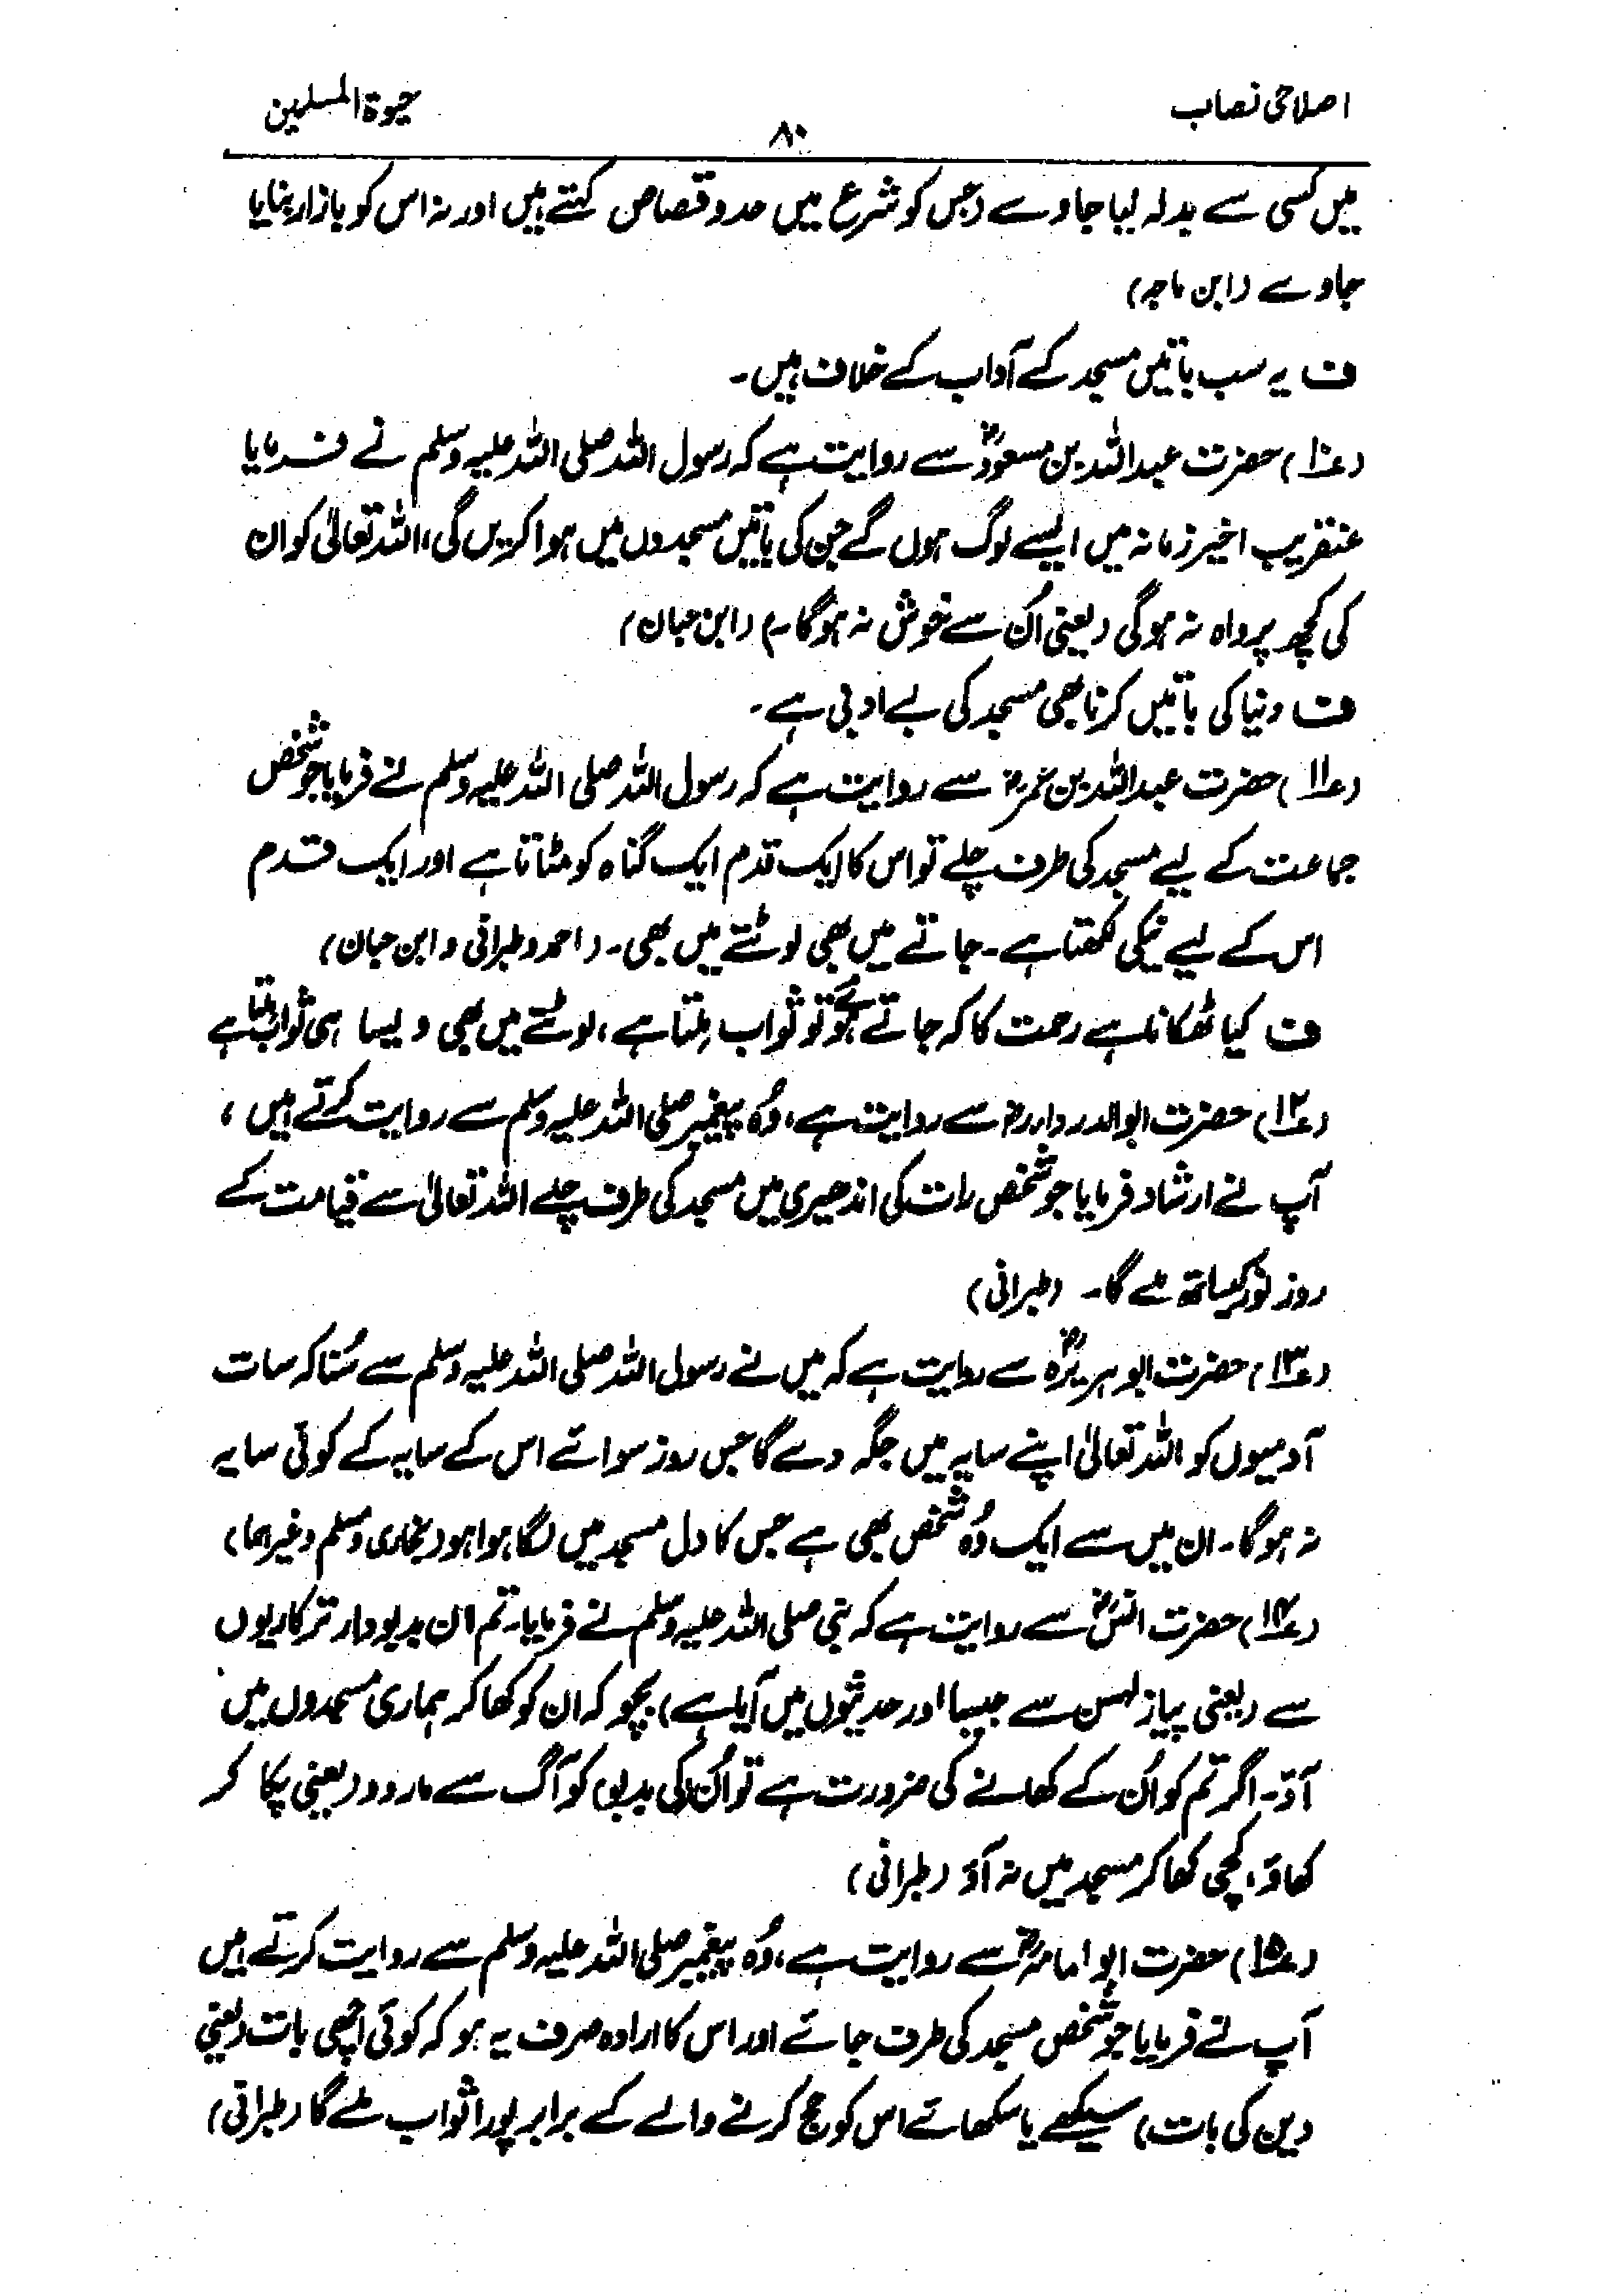 اصلاحی نصاب
۸۰
حیوۃ المسلمین
میں کسی سے بدلہ لیا جاوے (جس کو شرع میں حدوقصاص کہتے ہیں اور نہ اس کو بازار بنایا
جاوے (ابن ماجہ)
ف یہ سب باتیں مسجد کے آداب کے خلاف ہیں۔
(ع۱۰) حضرت عبداللہ بن مسعودؓ سے روایت ہے کہ رسول اللہ صلی اللہ علیہ وسلم نے فرمایا
عنقریب اخیر زمانہ میں ایسے لوگ ہوں گے جن کی باتیں مسجدوں میں ہوا کریں گی، اللہ تعالیٰ کو ان
کی کچھ پرواہ نہ ہوگی (یعنی اُن سے خوش نہ ہوگا۔) (ابن حبان)
ف دنیا کی باتیں کرنا بھی مسجد کی بے ادبی ہے۔
(ع۱۱) حضرت عبداللہ بن عمرؓ سے روایت ہے کہ رسول اللہ صلی اللہ علیہ وسلم نے فرمایا جو شخص
جماعت کے لیے مسجد کی طرف چلے تو اس کا ایک قدم ایک گناہ کو مٹاتا ہے اور ایک قدم
اس کے لیے نیکی لکھتا ہے۔ جاتے میں بھی لوٹتے میں بھی۔ (احمد وطبرانی وابن حبان)
ف کیا ٹھکانہ ہے رحمت کا کہ جاتے ہوئے تو ثواب مِلتا ہے، لوٹتے میں بھی ویسا ہی ثواب ملتا ہے
(ع۱۲) حضرت ابوالدرداءؓ سے روایت ہے، وُہ پیغمبر صلی اللہ علیہ وسلم سے روایت کرتے ہیں،
آپ نے ارشاد فرمایا جو شخص رات کی اندھیری میں مسجد کی طرف چلے اللہ تعالیٰ سے قیامت کے
روز نور کیساتھ ملے گا۔ (طبرانی)
(ع۱۳) حضرت ابوہریرہؓ سے روایت ہے کہ میں نے رسول اللہ صلی اللہ علیہ وسلم سے سُنا کہ سات
آدمیوں کو اللہ تعالیٰ اپنے سایہ میں جگہ دے گا جس روز سوائے اس کے سایہ کے کوئی سایہ
نہ ہوگا۔ ان میں سے ایک وُہ شخص بھی ہے جس کا دل مسجد میں لگا ہوا ہو (بخاری ومسلم وغیرہما)
(ع۱۴) حضرت انسؓ سے روایت ہے کہ نبی صلی اللہ علیہ وسلم نے فرمایا۔ تم ان بدبودار ترکاریوں
سے (یعنی پیاز لہسن سے جیسا اور حدیثوں میں آیا ہے) بچو کہ ان کو کھا کر ہماری مسجدوں میں
آؤ۔ اگر تم کو اُن کے کھانے کی ضرورت ہے تو اُن کی بدبو کو آگ سے مار دو (یعنی پکا کر
کھاؤ، کچی کھا کر مسجد میں نہ آؤ (طبرانی)
(ع۱۵) حضرت ابو امامہؓ سے روایت ہے، وُہ پیغمبر صلی اللہ علیہ وسلم سے روایت کرتے ہیں
آپ نے فرمایا جو شخص مسجد کی طرف جائے اور اس کا ارادہ صرف یہ ہو کہ کوئی اچھی بات (یعنی
دین کی بات) سیکھے یا سکھائے اس کو حج کرنے والے کے برابر پورا ثواب ملے گا (طبرانی)